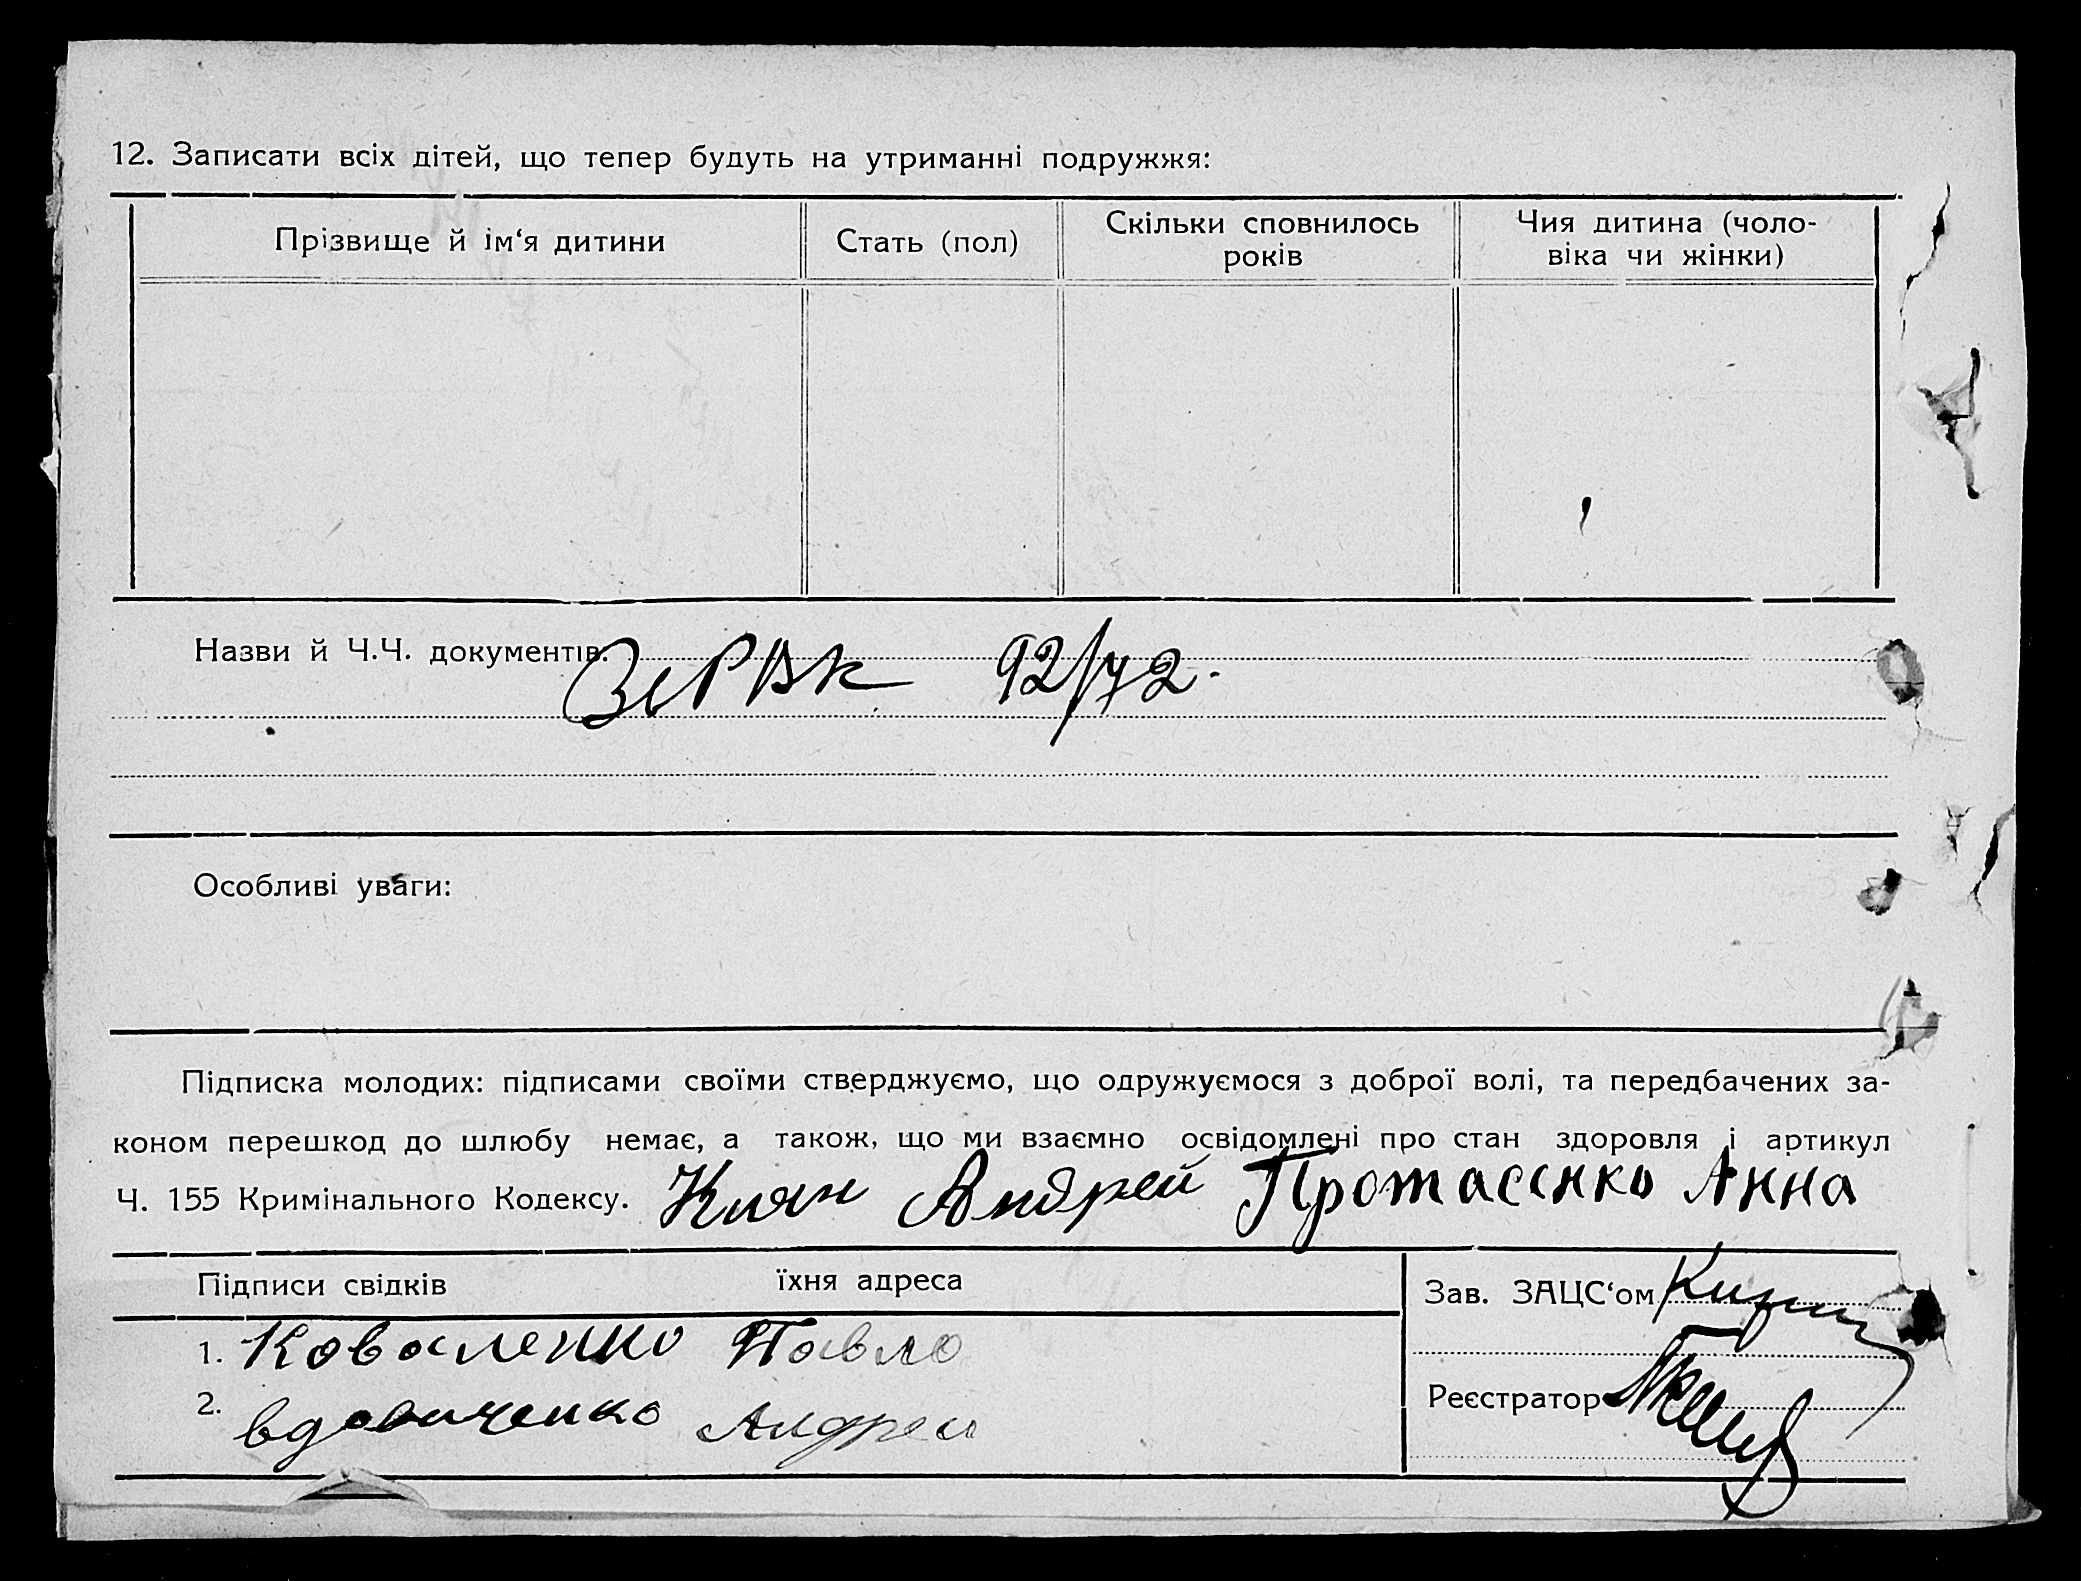 12. Записати всіх дітей, що тепер будуть на утриманні подружжя:
Прізвище й ім‘я дитини
Стать (пол)
Скільки сповнилось
років
Чия дитина (чоло-
віка чи жінки)
Назви й Ч.Ч. документів. 92/72.
Особливі уваги:
Підписка молодих: підписами своїми стверджуємо, що одружуємося з доброї волі, та передбачених за-
коном перешкод до шлюбу немає, а також, що ми взаємно освідомлені про стан здоровля і артикул
Ч. 155 Кримінального Кодексу. Киян Андрей Протасенко Анна
Підписи свідків їхня адреса
1. Коваленко Павло
2. вдовиченко Андрей
Зав. ЗАЦС‘ом
Реєстратор